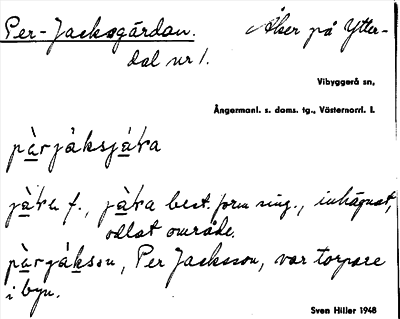 Per-Jacksgårdan. Åker på Ytter-
dal nr 1.
Vibyggerå sn,
Ångermanl. s. doms. tg., Västernorrl. l.
pàrjàksjàra
jàra f., jàra best. form sing., inhägnat,
odlat område.
pàrjàkson, Per Jacksson, var torpare
i byn.
Sven Hiller 1948